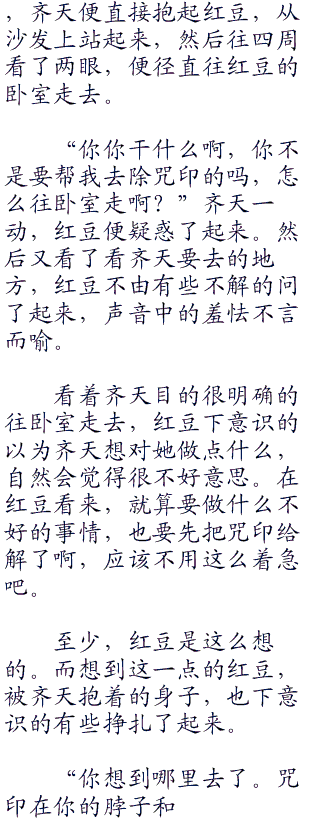 ，齐天便直接抱起红豆，从
沙发上站起来，然后往四周
看了两眼，便径直往红豆的
卧室走去。
“你你干什么啊，你不
是要帮我去除咒印的吗，怎
么往卧室走啊？”齐天一
动，红豆便疑惑了起来。然
后又看了看齐天要去的地
方，红豆不由有些不解的问
了起来，声音中的羞怯不言
而喻。
看着齐天目的很明确的
往卧室走去，红豆下意识的
以为齐天想对她做点什么，
自然会觉得很不好意思。在
红豆看来，就算要做什么不
好的事情，也要先把咒印给
解了啊，应该不用这么着急
吧。
至少，红豆是这么想
的。而想到这一点的红豆，
被齐天抱着的身子，也下意
识的有些挣扎了起来。
“你想到哪里去了。咒
印在你的脖子和